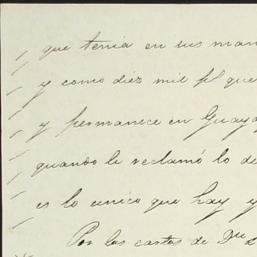 que tenia en sus man
y como diez mil ps. que
y permanece en Guaya
quando le reclamó lo de
es lo unico que hay y
Por las cartas de Dn.